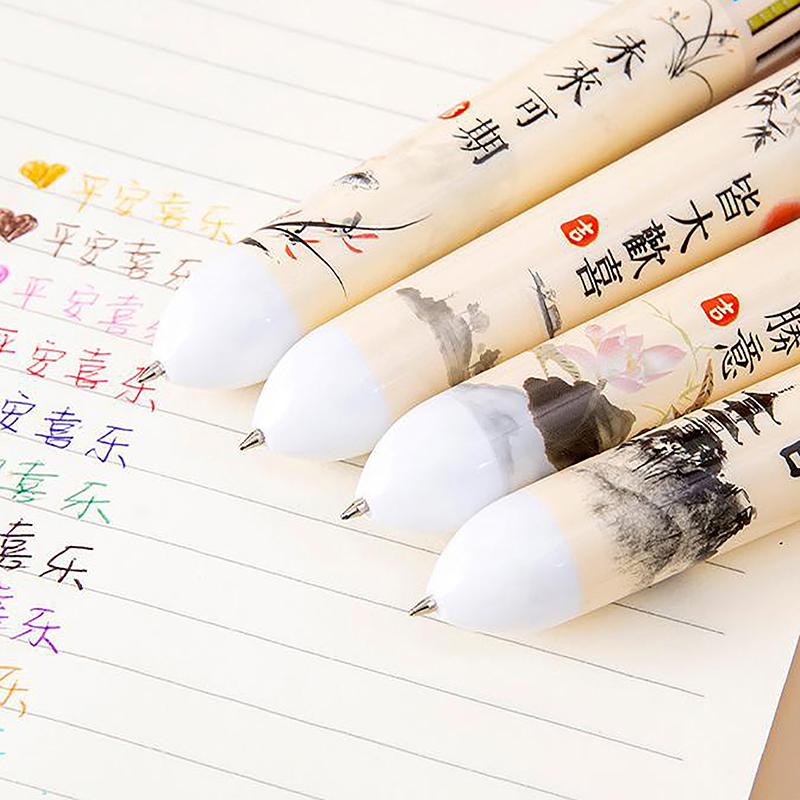 未來可期
皆大歡喜
吉
勝意
吉
平安喜乐
平安喜乐
平安喜乐
平安喜乐
安喜乐
喜乐
喜乐
喜乐
乐